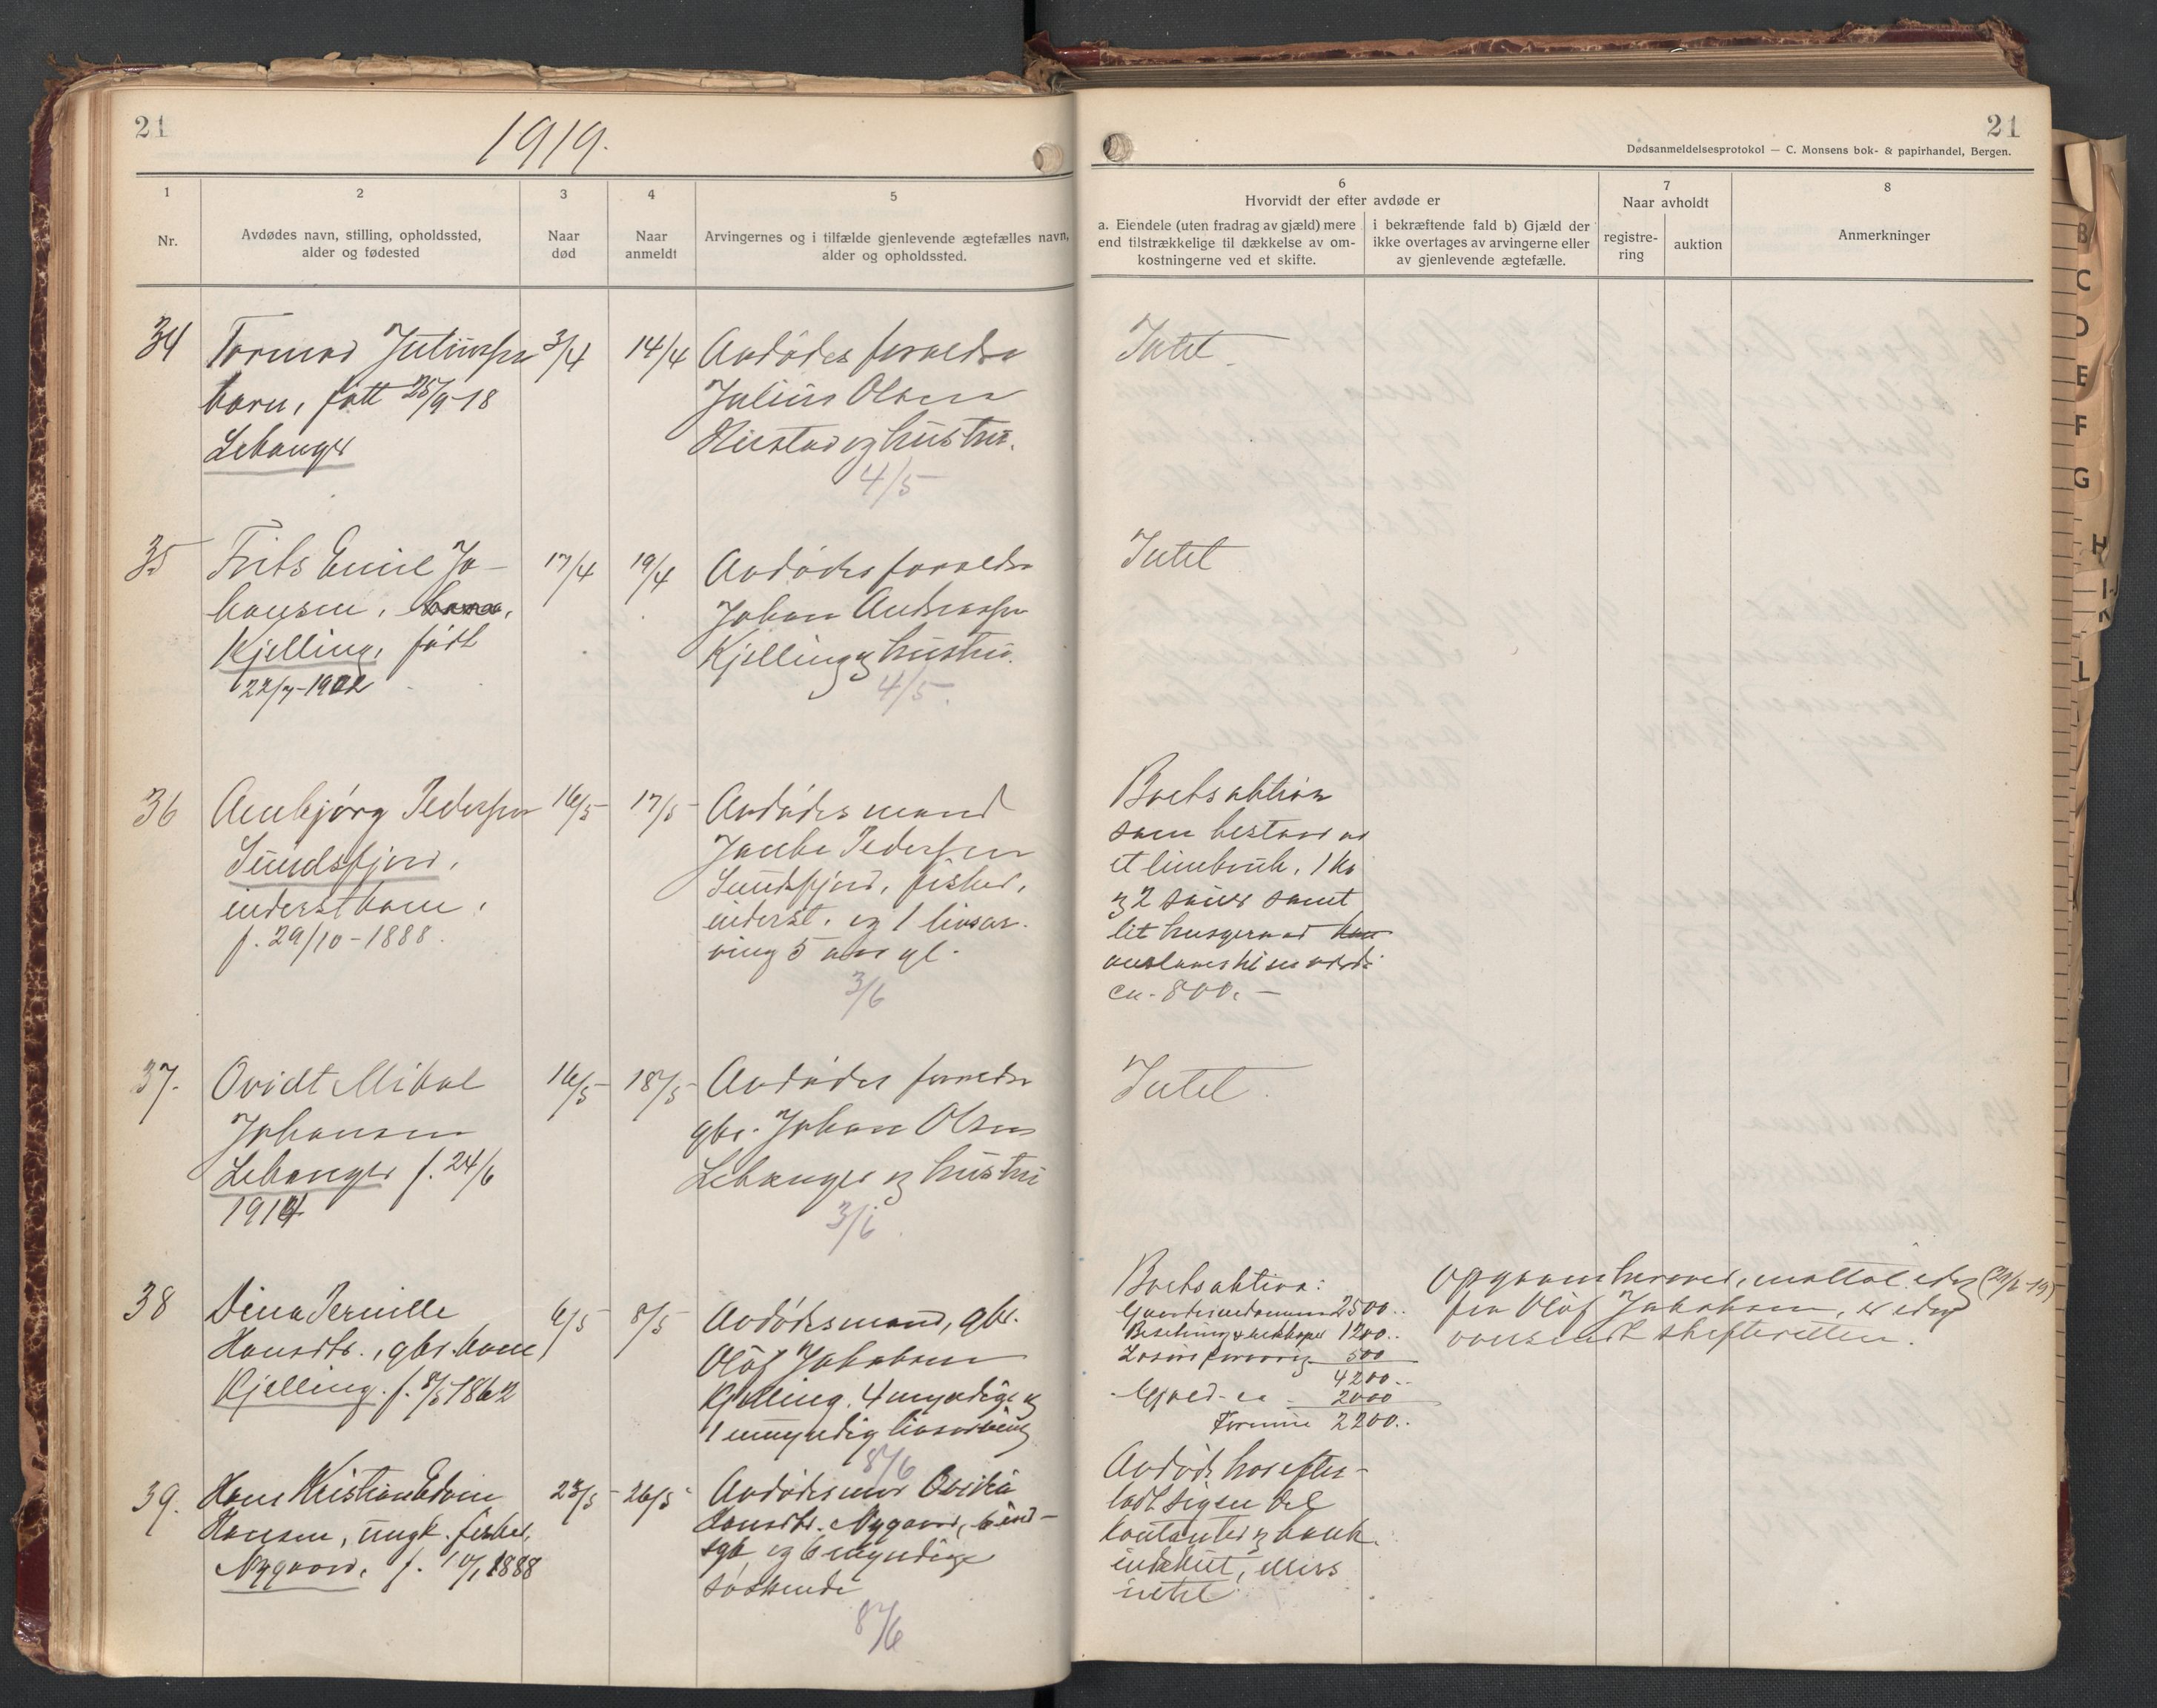 21
1919.
1
2
3
4
5
Nr.
Avdødes navn, stilling, opholdssted,
alder og fødested
Naar
død
Naar
anmeldt
Arvingernes og i tilfælde gjenlevende ægtefælles navn,
alder og opholdssted.
34
Tormod Juliussen
barn, født 25/9-18
Lekanger
3/4
14/4
Avdødes foreldre
Julius Olsen
og hustru.
4/5
35
Frits Emil Jo-
hansen,
Kjelling, født
22/7-1902
17/4
19/4
Avdødes foreldre
Johan Andreassen
Kjelling og hustru.
4/5.
36
Annbjørg Pedersen
Sundsfjord,
inderstkone,
f. 29/10-1888.
16/5
17/5
Avdødes mand
Pedersen
Sundsfjord, fisker,
inderst. og 1 livsar-
ving 5 aar gl.
3/6
37.
Ovidt Mikal
Johansen
Lekanger f. 24/6
1914
16/5
18/5
Avdødes foreldre
gbr. Johan Olsen
Lekanger og hustru
3/6.
38
Dina Pernille
Hansdtr., gbr. kone
Kjelling. f. 8/5 1862
6/5
8/5
Avdødes mand, gbr.
Olof Jakobsen
Kjelling. 4 myndige og
1 umyndig livsarving
8/6
39.
Hans Kristian Edvin
Hansen, ungk. fisker,
Nygaard, f. 10/1 1888
23/5
26/5
Avdødes mor
Hansdtr. Nygaard,
og 6 myndige
søskende
8/6
21
Dødsanmeldelsesprotokol — C. Monsens bok- & papirhandel, Bergen.
6
Hvorvidt der efter avdøde er
a. Eiendele (uten fradrag av gjæld) mere
end tilstrækkelige til dækkelse av om-
kostningerne ved et skifte.
i bekræftende fald b) Gjæld der
ikke overtages av arvingerne eller
av gjenlevende ægtefælle.
7
Naar avholdt
registre-
ring
auktion
8
Anmerkninger
Intet.
Intet
Boets aktiva
som bestaar av
et linebruk, 1 ko
og 2 sauer samt
lit husgeraad
anslaaes til en værdi
ca. 800.—
Intet.
Boets aktiva:
Gaardeiendommen 2500..
Besetning & redskaper 1200..
Løsøre forøvrig 500
4200..
Gjæld ca 2000
Formue 2200..
Opgaven herover, mottat idag (29/6-19)
fra Olof Jakobsen, er idag
oversendt skifteretten.
Avdøde har efter-
ladt sig en del
kontanter og bank-
indskut, ellers
intet.
B
C
D
E
F
G
H
I-J
K
L